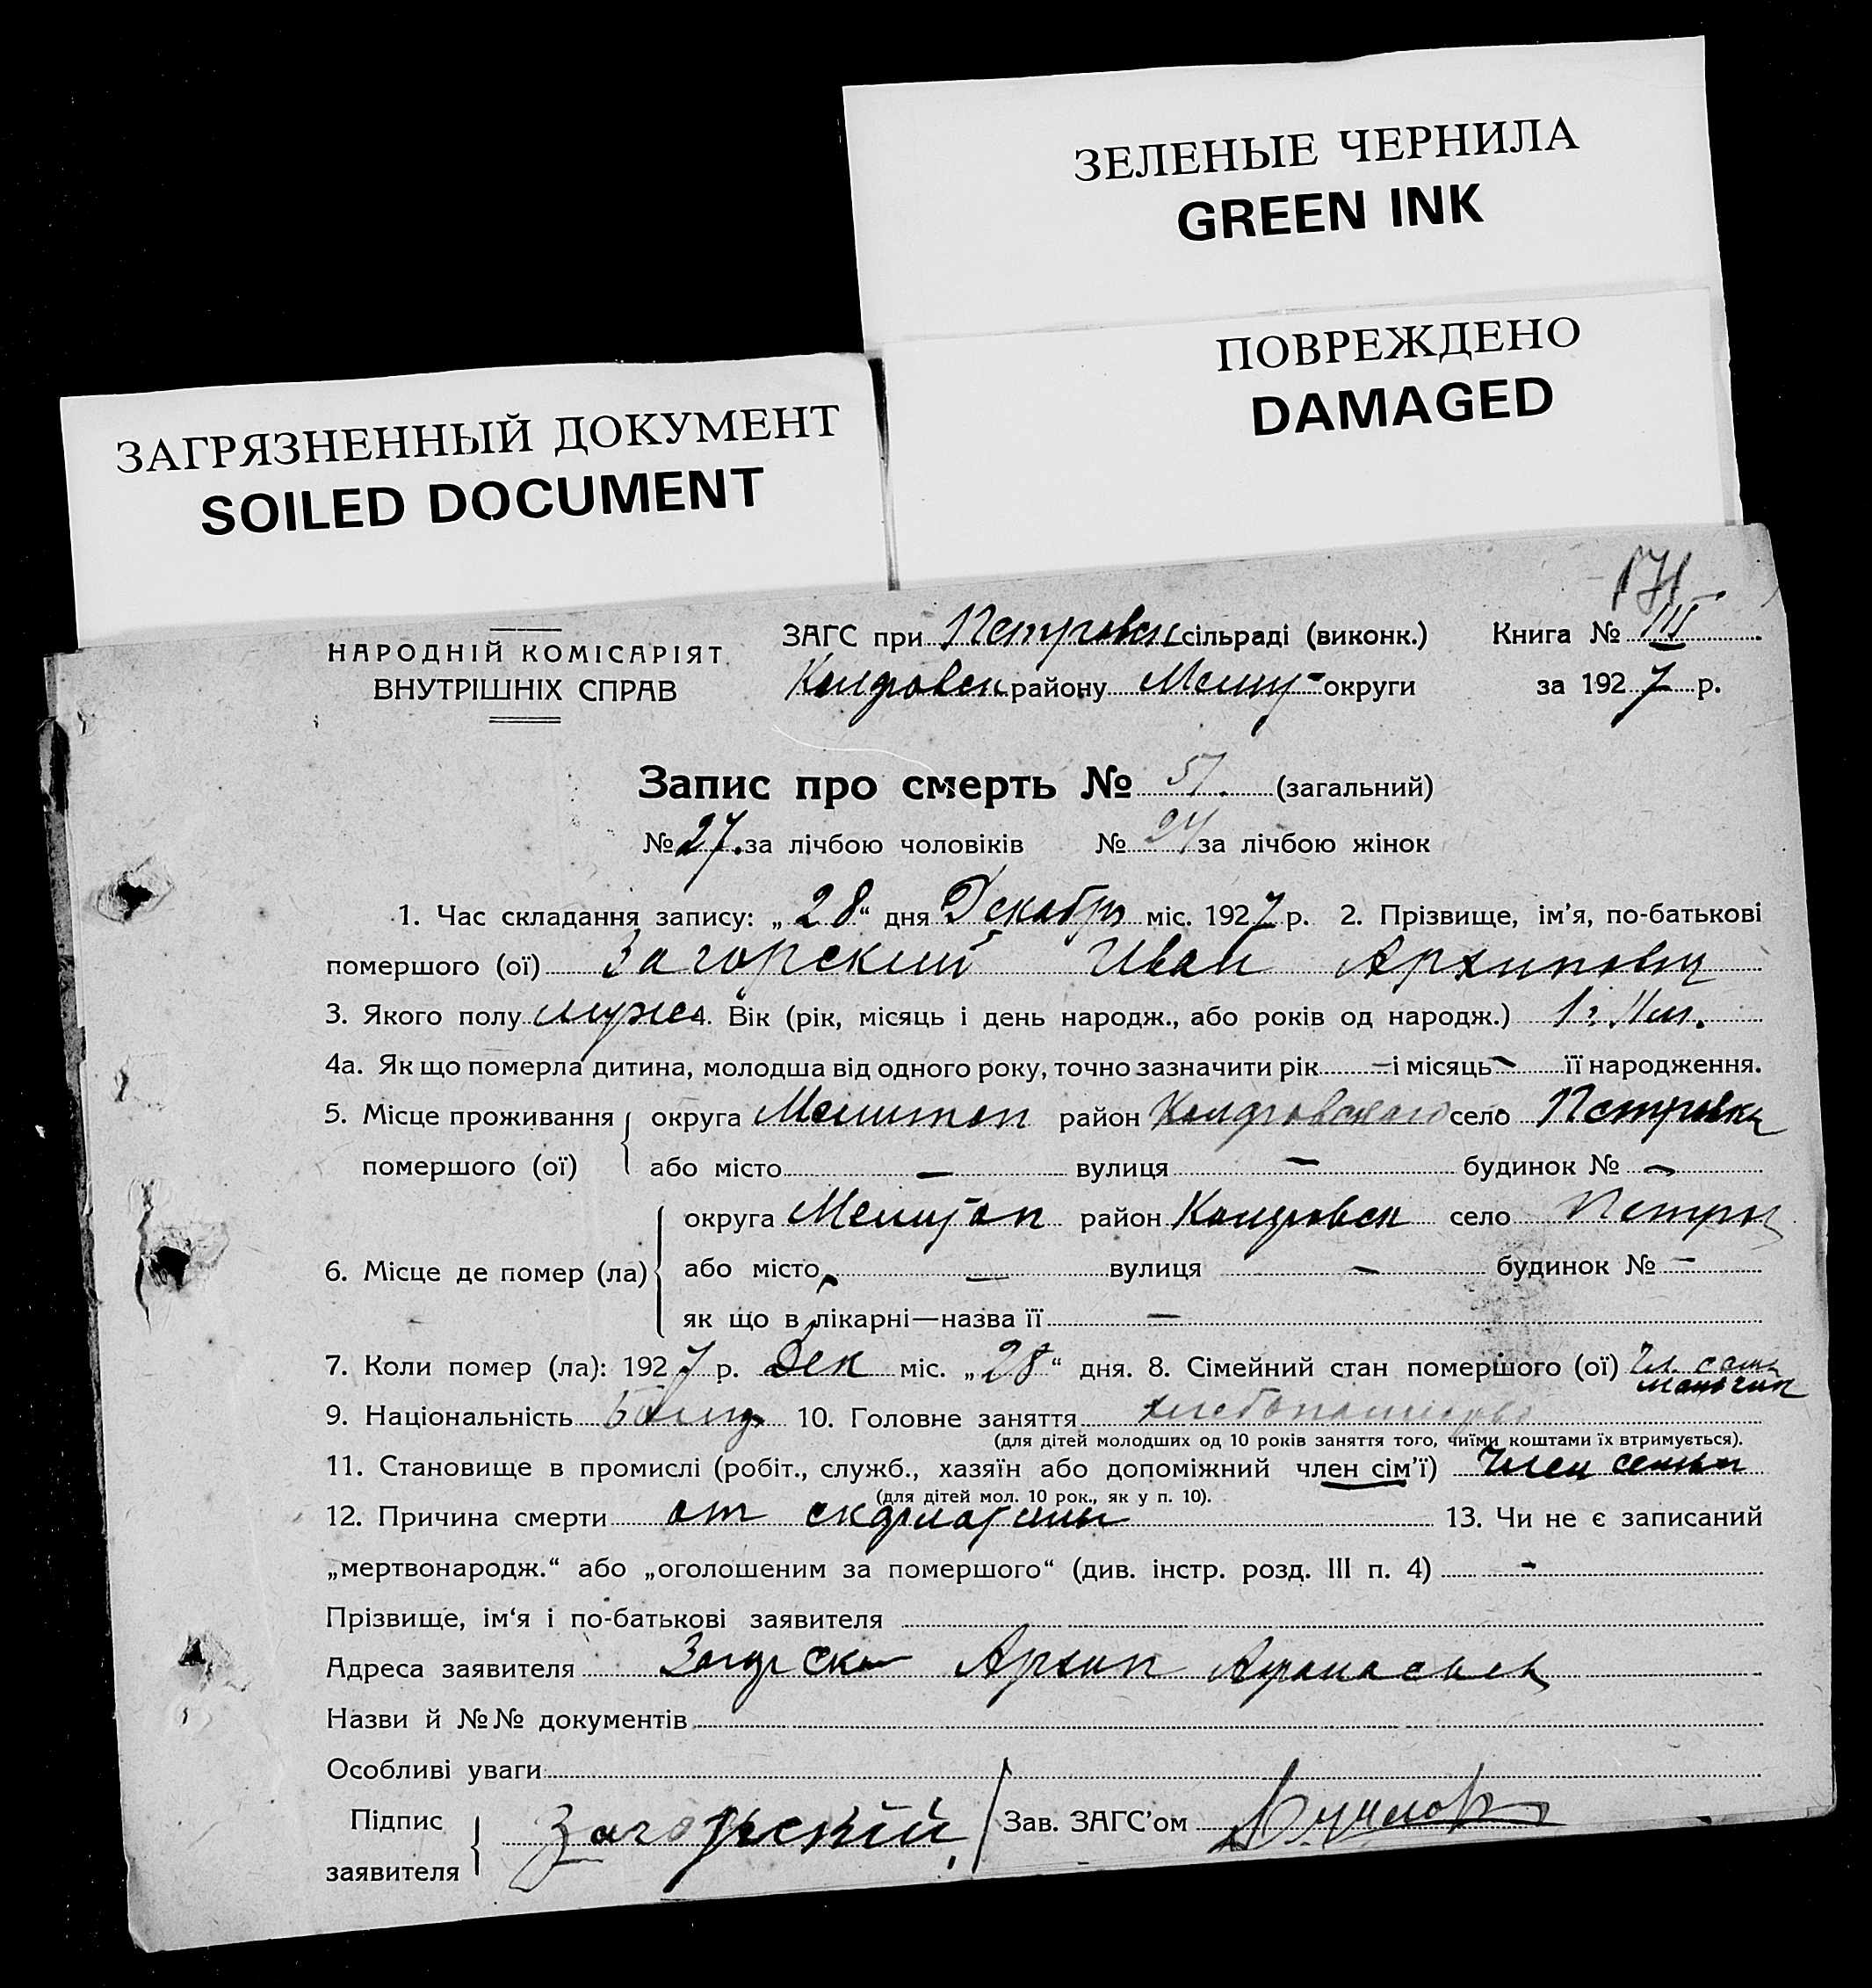 ЗЕЛЕНЫЕ ЧЕРНИЛА
GREEN INK
ПОВРЕЖДЕНО
DAMAGED
ЗАГРЯЗНЕННЫЙ ДОКУМЕНТ
SOILED DOCUMENT
171
НАРОДНІЙ КОМІСАРІЯТ
ВНУТРІШНІХ СПРАВ
ЗАГС при Петровск сільраді (виконк.) Книга № III
району Мелит- округи за 1927 р.
Запис про смерть № 51. (загальний)
№ 27. за лічбою чоловіків № 24 за лічбою жінок
1. Час складання запису: „28“ дня Декабрь міс. 1927 р. 2. Прізвище, ім’я, по-батькові
помершого (ої) Загорский Иван Архипович
3. Якого полу муже 4. Вік (рік, місяць і день народж., або років од народж.) 1 г. 11 м.
4а. Як що померла дитина, молодша від одного року, точно зазначити рік – і місяць – її народження.
5. Місце проживання округа Мелитоп район село Петровка
помершого (ої) або місто – вулиця – будинок № –
округа Мелитоп район село Петров
6. Місце де помер (ла) або місто – вулиця – будинок № –
як що в лікарні—назва її –
7. Коли помер (ла): 1927 р. Дек міс. „28“ дня. 8. Сімейний стан померішого (ої) Чл. семь
мальчик
9. Національність Болгар 10. Головне заняття хлебопашество
(для дітей молодших од 10 років заняття того, чиїми коштами їх втримується).
11. Становище в промислі (робіт., служб., хазяїн або допоміжний член сім’ї) Член семьи
(для дітей мол. 10 рок., як у п. 10).
12. Причина смерти от скарлатины 13. Чи не є записаний
„мертвонародж.“ або „оголошеним за помершого“ (див. інстр. розд. III п. 4) -
Прізвище, ім‘я і по-батькові заявителя
Адреса заявителя Загорски Архип Афанасьев
Назви й №№ документів
Особливі уваги
Підпис
заявителя Загорскій Зав. ЗАГС’ом